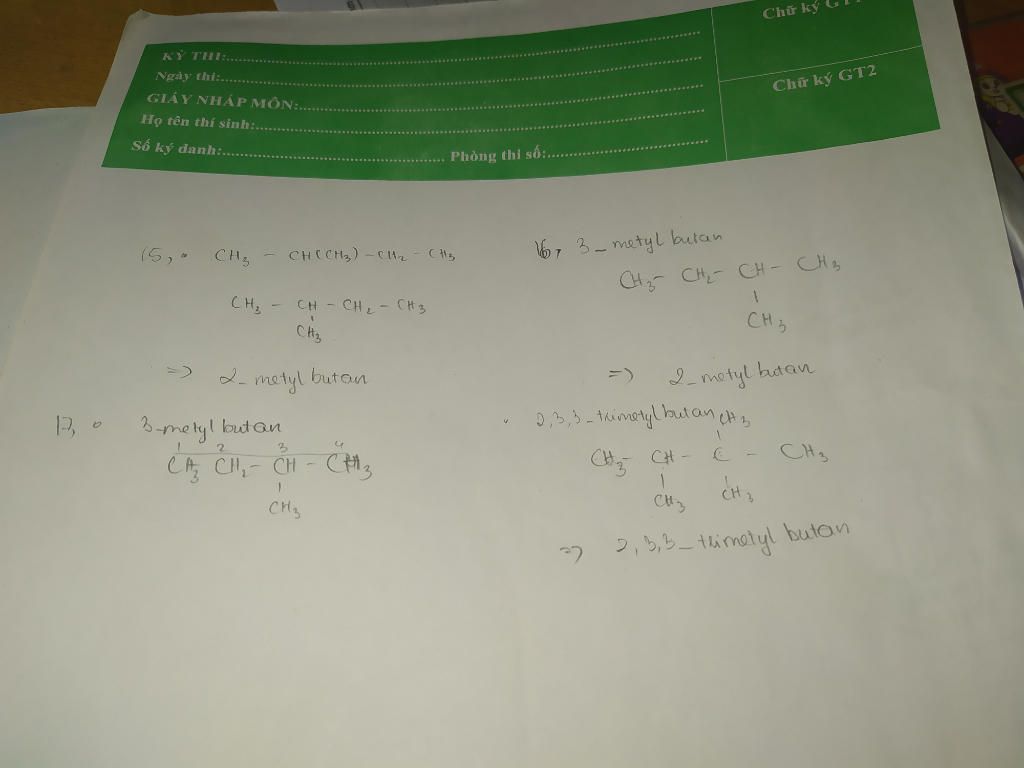 Chữ ký GT1
KỲ THI:
Ngày thi:
GIẤY NHÁP MÔN:
Họ tên thí sinh:
Số ký danh: Phòng thi số:
Chữ ký GT2
15, • CH3 - CH(CH3) - CH2 - CH3
CH3 - CH - CH2 - CH3
CH3
=> 2-metyl butan
16, 3-metyl butan
CH3 - CH2 - CH - CH3
CH3
=> 2-metyl butan
17, • 3-metyl butan
1 2 3 4
CH3 CH2 - CH - CH3
CH3
• 2,3,3-trimetyl butan
CH3
CH3 - CH - C - CH3
CH3 CH3
=> 2,3,3-trimetyl butan